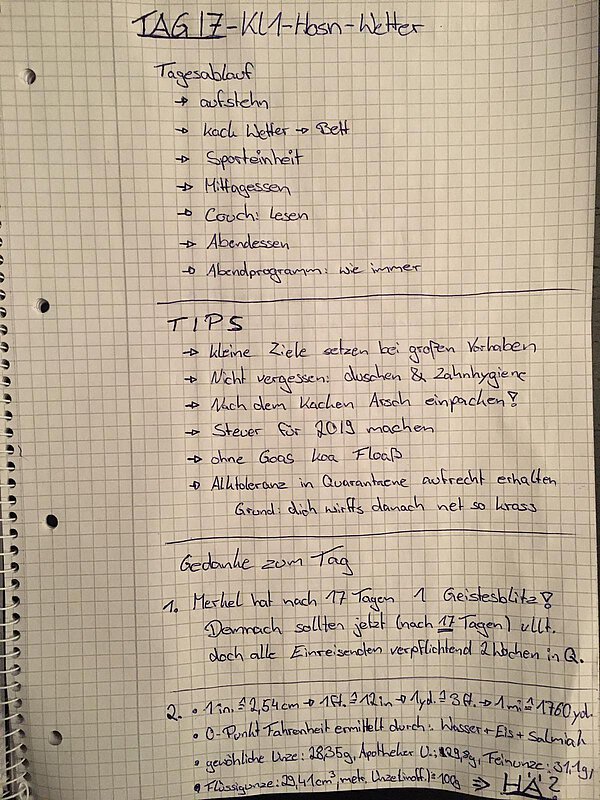 TAG 17-KL1-Hosn-Wetter
Tagesablauf
→ aufstehn
→ kack Wetter → Bett
→ Sporteinheit
→ Mittagessen
→ Couch: Lesen
→ Abendessen
→ Abendprogramm: wie immer
TIPS
→ kleine Ziele setzen bei großen Vorhaben
→ Nicht vergessen: duschen & Zahnhygiene
→ Nach dem Kacken Arsch einpacken!
→ Steuer für 2019 machen
→ ohne Goas koa Floaß
→ Alktoleranz in Quarantaene aufrecht erhalten
Grund: dich wirfts danach net so krass
Gedanke zum Tag
1. Merkel hat nach 17 Tagen 1 Geistesblitz!
Demnach sollten jetzt (nach 17 Tagen) vllt.
doch alle Einreisenden verpflichtend 2 Wochen in Q.
2. • 1 in. ≙ 2,54cm → 1ft. ≙ 12in → 1yd. ≙ 3ft. → 1mi ≙ 1760yd.
• 0-Punkt Fahrenheit ermittelt durch: Wasser + Eis + Salmiak
• gewöhliche Unze: 28,35g, Apotheker U.: g, Feinunze: 31,1g,
• Flüssigunze: 29,41cm³, metr. Unze(inoff.) = 100g ⇒ HÄ?